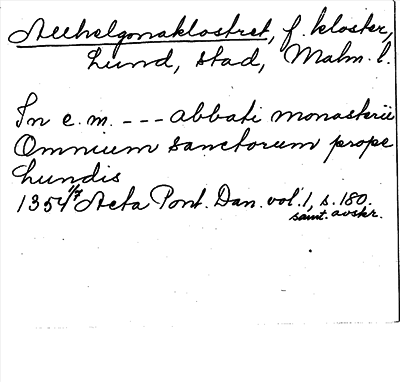 Allhelgonaklostret, f. kloster,
Lund, stad, Malm. l.
In e. m. --- abbati monasterii
Omnium sanctorum prope
Lundis
1354 1/7 Acta Pont. Dan. vol. 1, s. 180.
samt. avskr.